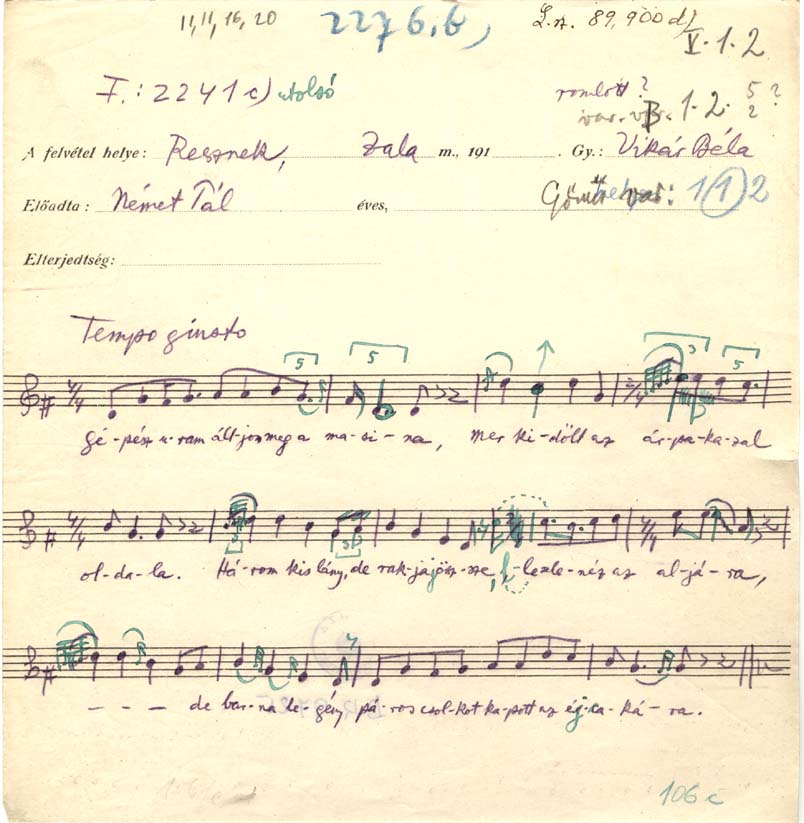 11, 11, 16, 20 2276.b, L.sz. 89,900 d)
V. 1. 2
F.: 2241c) utolsó romlott? 5?
var. 1. 2. 2
A felvétel helye: Resznek, Zala m., 191 . Gy.: Vikár Béla
Előadta: Német Pál éves, 1 1 2
Elterjedtség:
Tempo giusto
5 5 3 5
Gé-pész u-ram ált-jon meg a ma-si-na, Mer ki-dölt az ár-pa-ka-zal
ol-da-la. Há-rom kis lány, de rak-ja ösz-sze, le-néz az al-já-ra,
— — — de bar-na le-gény pá-ros csol-kot ka-pott az ég-sa-ká-ra.
106 c